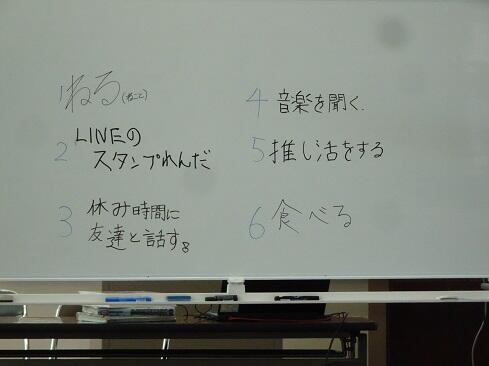 1 ねる(ねごと)
2 LINEの
スタンプれんだ
3 休み時間に
友達と話する
4 音楽を聞く.
5 推し活をする
6 食べる